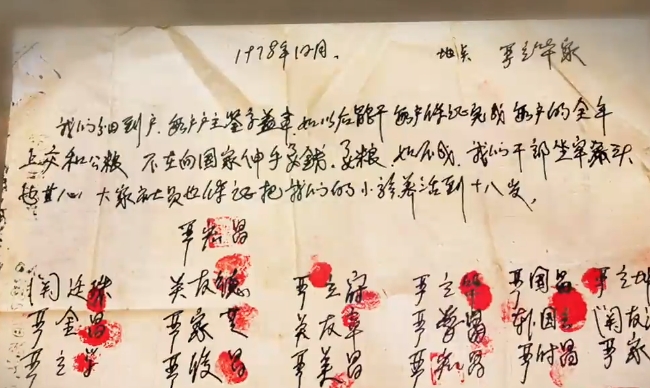 1978年12月. 地点 严立华家
我们分田到户.每户户主签字盖章.如以后能干 每户保证完成 每户的全年
上交和公粮 不在向国家伸手要钱.要粮.如不成.我们干部坐牢杀头
也甘心 大家社员也保证把我们的小孩养活到十八岁.
严宏昌
关廷珠 关友德 严立符 严立华 严国昌 严立坤
严金昌 严家芝 关友章 严学昌 韩国云 关友江
严立学 严俊昌 严美昌 严宏昌 严付昌 严家